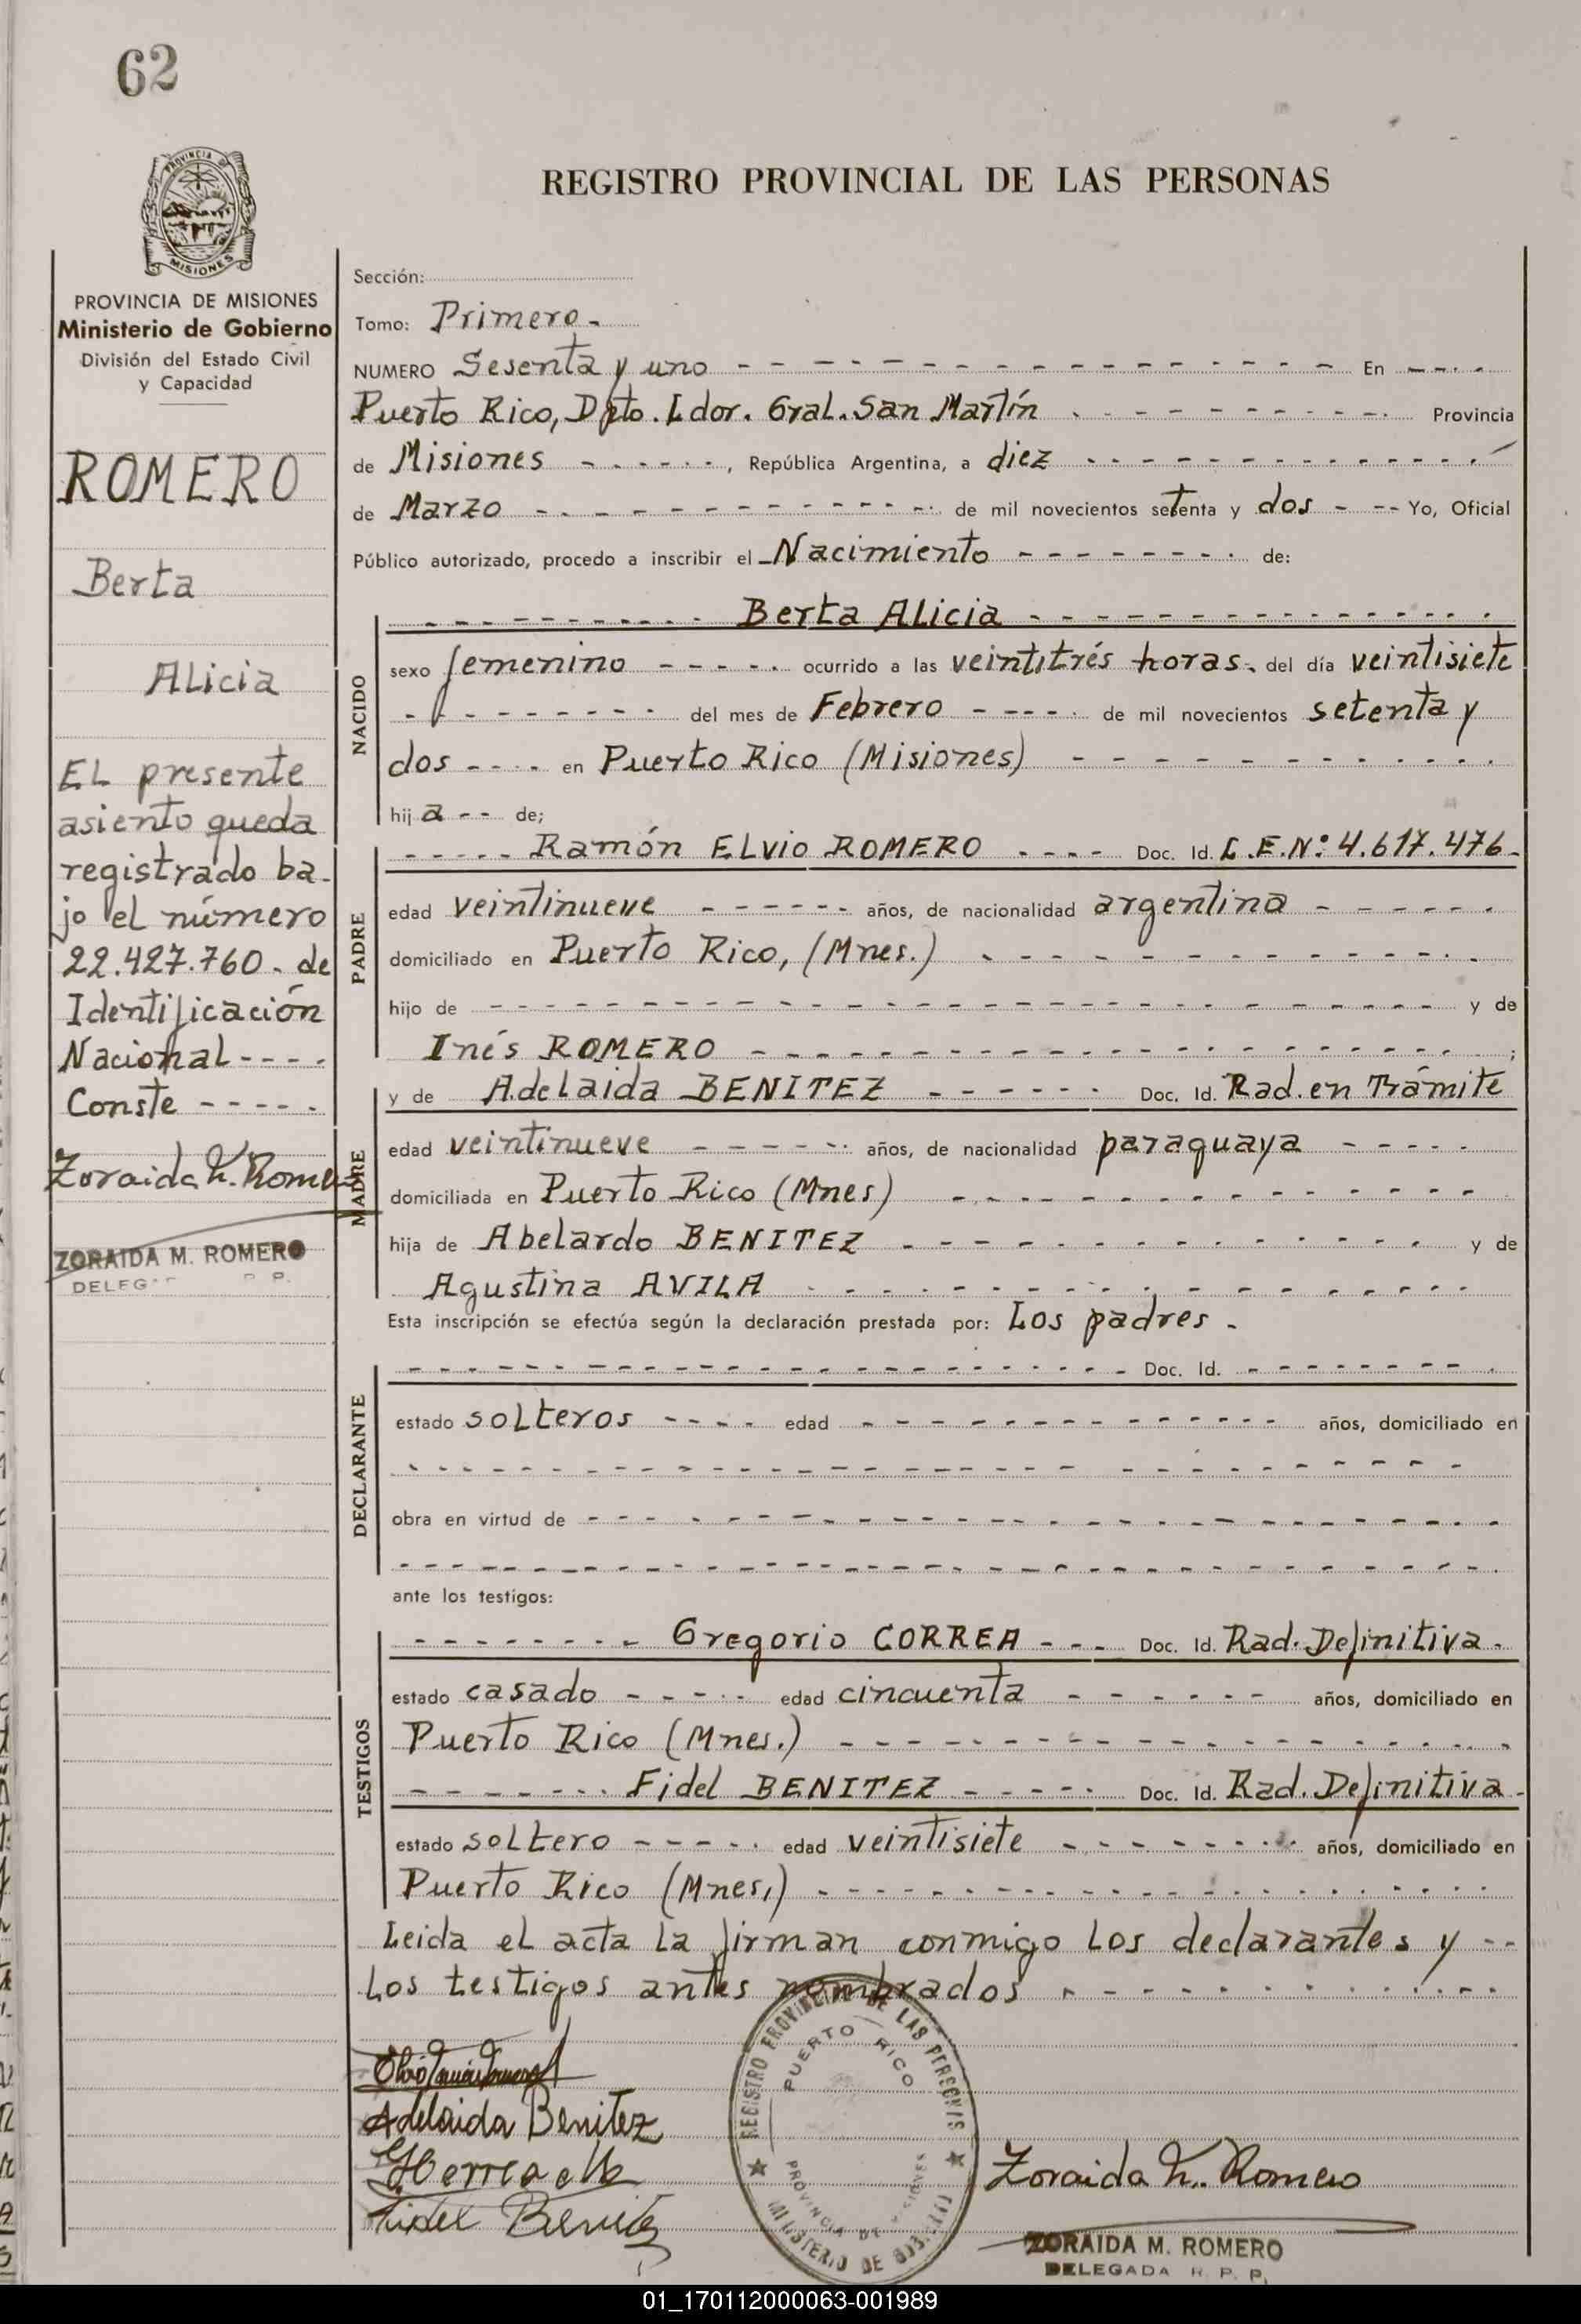 62
PROVINCIA DE
MISIONES
REGISTRO PROVINCIAL DE LAS PERSONAS
PROVINCIA DE MISIONES
Ministerio de Gobierno
División del Estado Civil
y Capacidad
ROMERO
Berta
Alicia
EL presente
asiento queda
registrado ba-
jo el número
22.427.760. de
Identificación
Nacional ----
Conste -----
Zoraida M. Romero
ZORAIDA M. ROMERO
Sección:
Tomo: Primero.-
NUMERO Sesenta y uno - - - - En - - - -
Puerto Rico, Dpto. Ldor. Gral. San Martín - - - - Provincia
de Misiones - - - - , República Argentina, a diez - - - -
de Marzo - - - - de mil novecientos setenta y dos - -- Yo, Oficial
Público autorizado, procedo a inscribir el Nacimiento - - - - de:
NACIDO
- - - - Berta Alicia - - - -
sexo femenino - - - - ocurrido a las veintitrés horas. del día veintisiete
- - - - del mes de Febrero - - - - de mil novecientos setenta y
dos - - - - en Puerto Rico (Misiones) - - - -
hij a - - de;
PADRE
- - - - Ramón ELvio ROMERO - - - - Doc. Id. L.E.Nº 4.617.476-
edad veintinueve - - - - años, de nacionalidad argentina - - - -
domiciliado en Puerto Rico, (Mnes.) - - - -
hijo de - - - - y de
Inés ROMERO - - - - ;
MADRE
y de Adelaida BENITEZ - - - - Doc. Id. Rad. en Trámite
edad veintinueve - - - - años, de nacionalidad paraguaya - - - -
domiciliada en Puerto Rico (Mnes) - - - -
hija de Abelardo BENITEZ - - - - y de
Agustina AVILA - - - -
Esta inscripción se efectúa según la declaración prestada por: Los padres.-
DECLARANTE
- - - - Doc. Id. - - - -
estado solteros - - - - edad - - - - años, domiciliado en
- - - -
obra en virtud de - - - -
- - - -
ante los testigos:
TESTIGOS
- - - - Gregorio CORREA - - - Doc. Id. Rad. Definitiva.
estado casado - - - - edad cincuenta - - - - años, domiciliado en
Puerto Rico (Mnes.) - - - -
- - - - Fidel BENITEZ - - - - Doc. Id. Rad. Definitiva-
estado soltero - - - - edad veintisiete - - - - años, domiciliado en
Puerto Rico (Mnes,) - - - -
Leida el acta la firman conmigo los declarantes y --
los testigos antes nombrados - - - -
Adelaida Benitez
Fidel Benitez
REGISTRO PROVINCIAL DE LAS PERSONAS
PUERTO RICO
PROVINCIA DE MISIONES
MINISTERIO DE GOBIERNO
Zoraida M. Romero
ZORAIDA M. ROMERO
DELEGADA R. P. P.
01_170112000063-001989